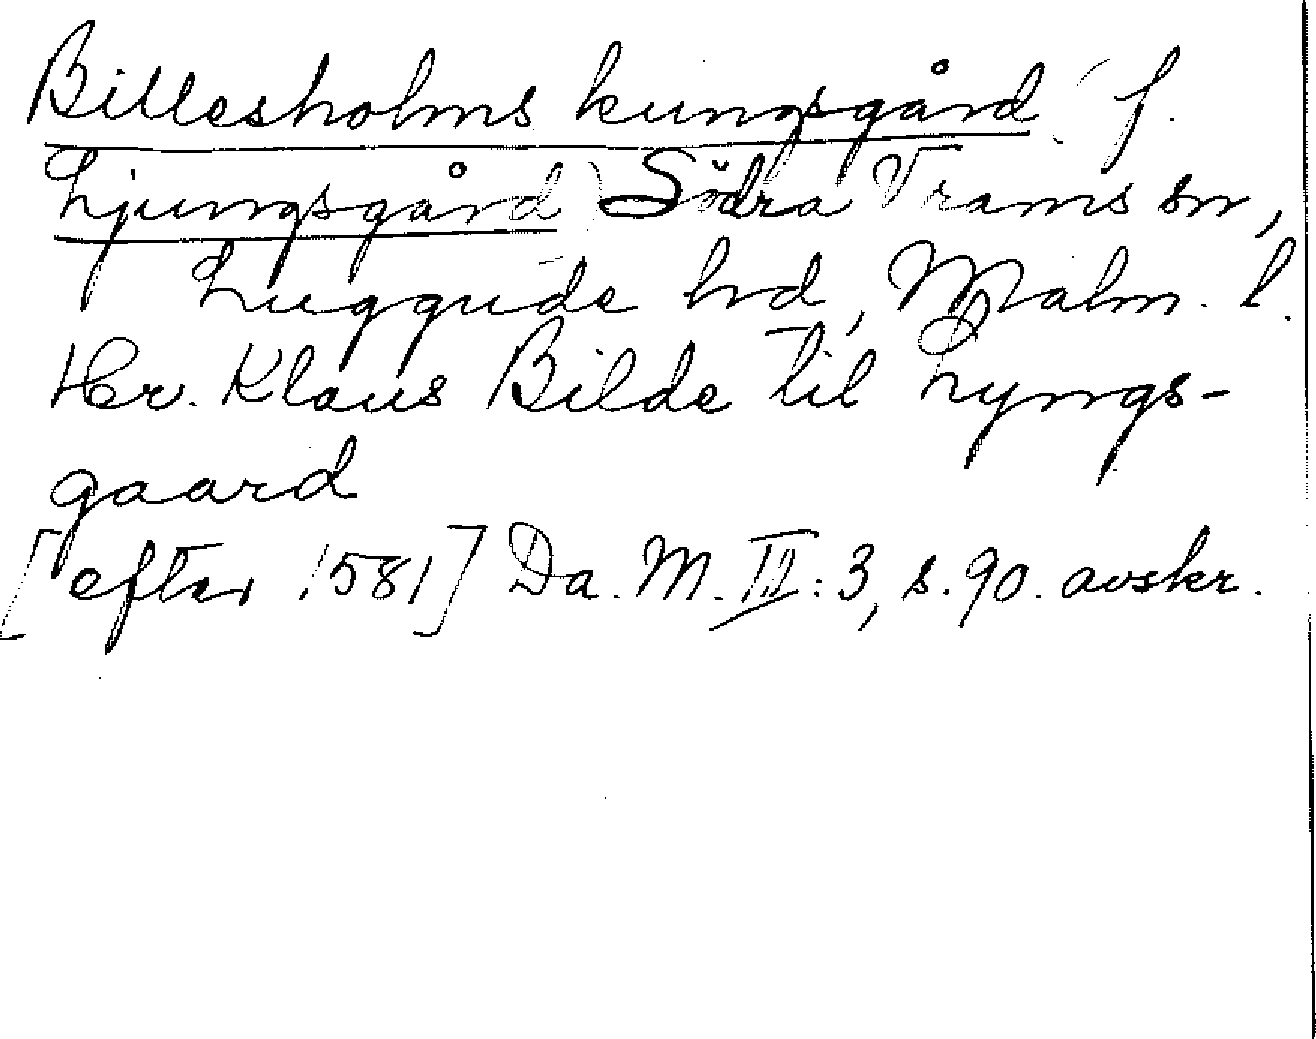 Billesholms kungsgård (f.
Ljungsgård) Södra Trams sn,
Luggude hd, Malm. l.
Hr. Klaus Bilde til Lyngs-
gaard
[efter 1581] Da. M. III: 3, s. 90. avskr.